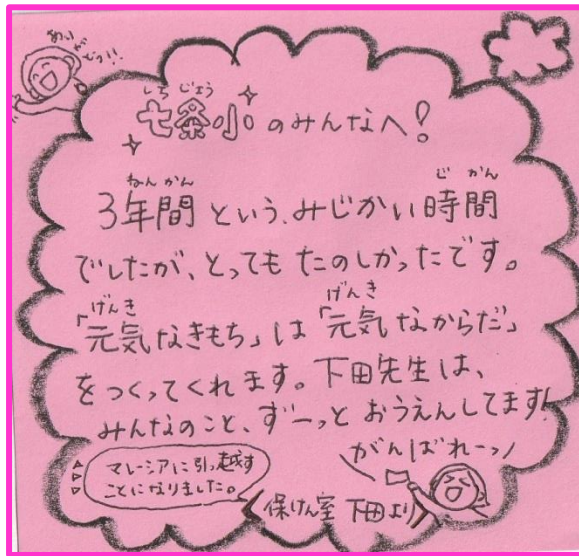 ありがとう!!
しちじょう
七条小のみんなへ!
ねんかん じかん
3年間という、みじかい時間
でしたが、とってもたのしかったです。
げんき げんき
「元気なきもち」は「元気なからだ」
をつくってくれます。下田先生は、
みんなのこと、ずーっとおうえんしてます!
がんばれーっ
マレーシアに引っ越す
ことになりました。
保けん室 下田より